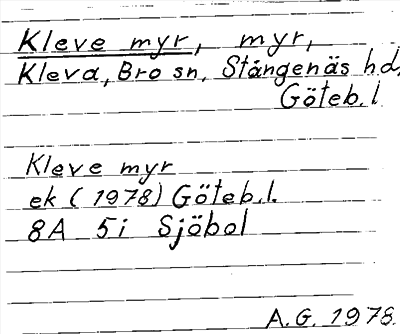 Kleve myr, myr,
Kleva, Bro sn, Stångenäs hd,
Göteb. l
Kleve myr
ek (1978) Göteb. l.
8A 5i Sjöbol
A.G. 1978.